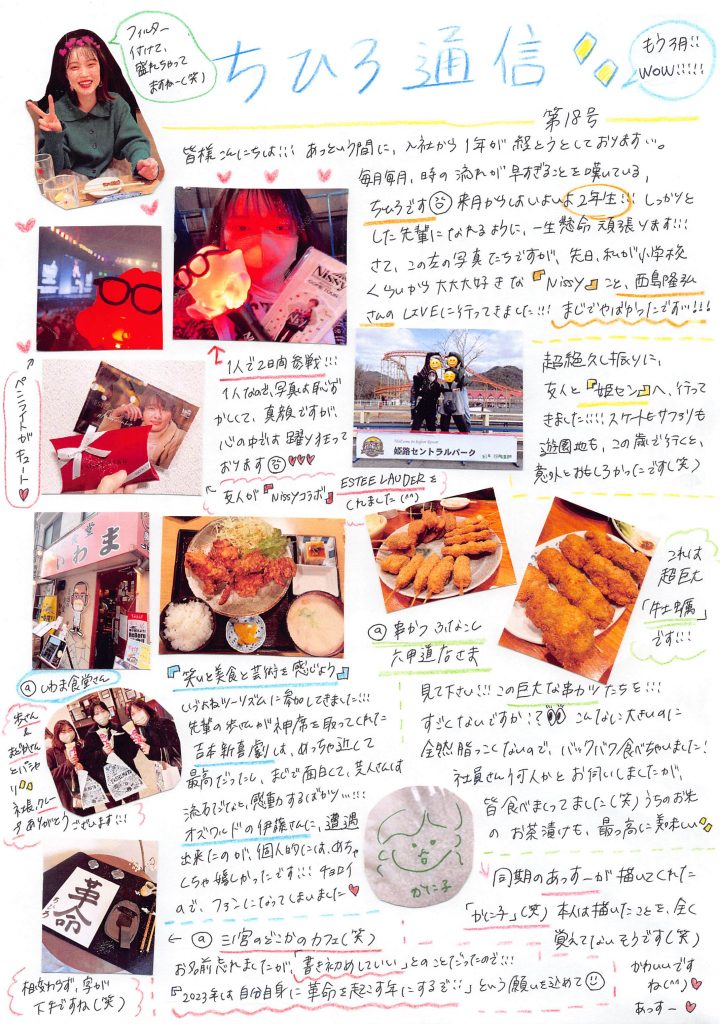 フィルター
付けて、
盛れちゃって
ますねー(笑)
ちひろ通信
もう3月!!
WOW!!!!!
第18号
皆様こんにちは!!! あっという間に、入社から1年が経とうとしております…。
毎月毎月、時の流れが早すぎることを嘆いている、
ちひろです 来月からはいよいよ2年生!!! しっかりと
した先輩になれるように、一生懸命頑張ります!!!
さて、この左の写真たちですが、先日、私が小学校
くらいから大大大好きな『Nissy』こと、西島隆弘
さんのLIVEに行ってきました!!! まじでやばかったです…!!!
Nissy
ペンライトがキュート
1人で2日間参戦!!!
1人なので、写真は恥ず
かしくて、真顔ですが、
心の中では躍り狂って
おります
友人が『Nissyコラボ』ESTEE LAUDERを
くれました(^^)
姫路セントラルパーク
超絶久し振りに、
友人と『姫セン』へ、行って
きました!!! スケートもサファリも
遊園地も、この歳で行くと、
意外とおもしろかったです(笑)
いわま
@いわま食堂さん
@串かつ ふなこし
六甲道店さま
これは
超巨大
「牡蠣」
です!!!
見て下さい!!! この巨大な串カツたちを!!!
すごくないですか!? こんなに大きいのに
全然脂っこくないので、バックバク食べちゃいました!
社員さん何人かとお伺いしましたが、
皆食べまくってました(笑) うちのお米
のお茶漬けも、最っ高に美味しい
『笑いと美食と芸術を感じよう』
いよよねツーリズムに参加してきました!!!
先輩の歩さんが神席を取ってくれた
吉本新喜劇は、めっちゃ近くて
最高だったし、まじで面白くて、芸人さんは
流石だなと、感動するばかり…!!!
オズワルドの伊藤さんに、遭遇
出来たのが、個人的には、めちゃ
くちゃ嬉しかったです!!! チョロイ
ので、ファンになってしまいました
歩さん
&
まどかさん
とパシャ
リ
社長、クレー
プありがとうございます!!!
かに子
同期のあっすーが描いてくれた
「かに子」(笑) 本人は描いたことを、全く
覚えてないそうです(笑)
かわいいです
ね(^^)
あっすー
革命
相変わらず、字が
下手ですね(笑)
@三ノ宮のどこかのカフェ(笑)
お名前忘れましたが、「書き初めしていい」とのことだったので!!!
『2023年は自分自身に革命を起こす年にするぞ!!』という願いを込めて